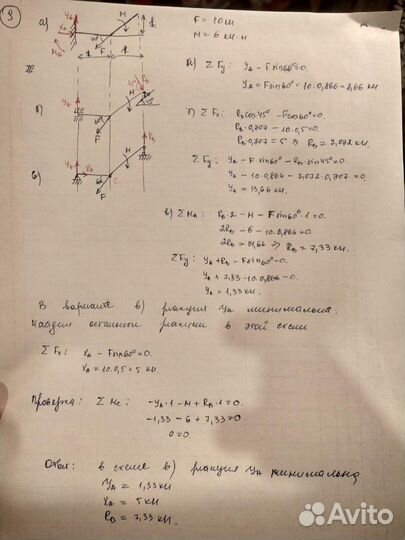 3
а)
F = 10 кН
M = 6 кН·м
а) Σ Fy: YA − F sin60° = 0.
YA = F sin60° = 10·0,866 = 8,66 кН
б)
б) Σ Fx: RB cos45° − F cos60° = 0.
RB·0,707 − 10·0,5 = 0.
RB·0,707 = 5 ⇒ RB = 7,072 кН.
Σ Fy: YA − F·sin60° − RB·sin45° = 0.
YA − 10·0,866 − 7,072·0,707 = 0.
YA = 13,66 кН.
в)
в) Σ MA: RB·2 − M − F sin60°·1 = 0.
2RB − 6 − 10·0,866 = 0.
2RB = 14,66 ⇒ RB = 7,33 кН.
Σ Fy: YA + RB − F sin60° = 0.
YA + 7,33 − 10·0,866 = 0.
YA = 1,33 кН.
В варианте в) реакция YA минимальна.
Найдем остальные реакции в этой схеме
Σ Fx: XA − F sin60° = 0.
XA = 10·0,5 = 5 кН.
Проверка: Σ Mc: −YA·1 − M + RB·1 = 0.
−1,33 − 6 + 7,33 = 0
0 = 0.
Ответ: в схеме в) реакция YA минимальна,
YA = 1,33 кН
XA = 5 кН
RB = 7,33 кН.
Avito